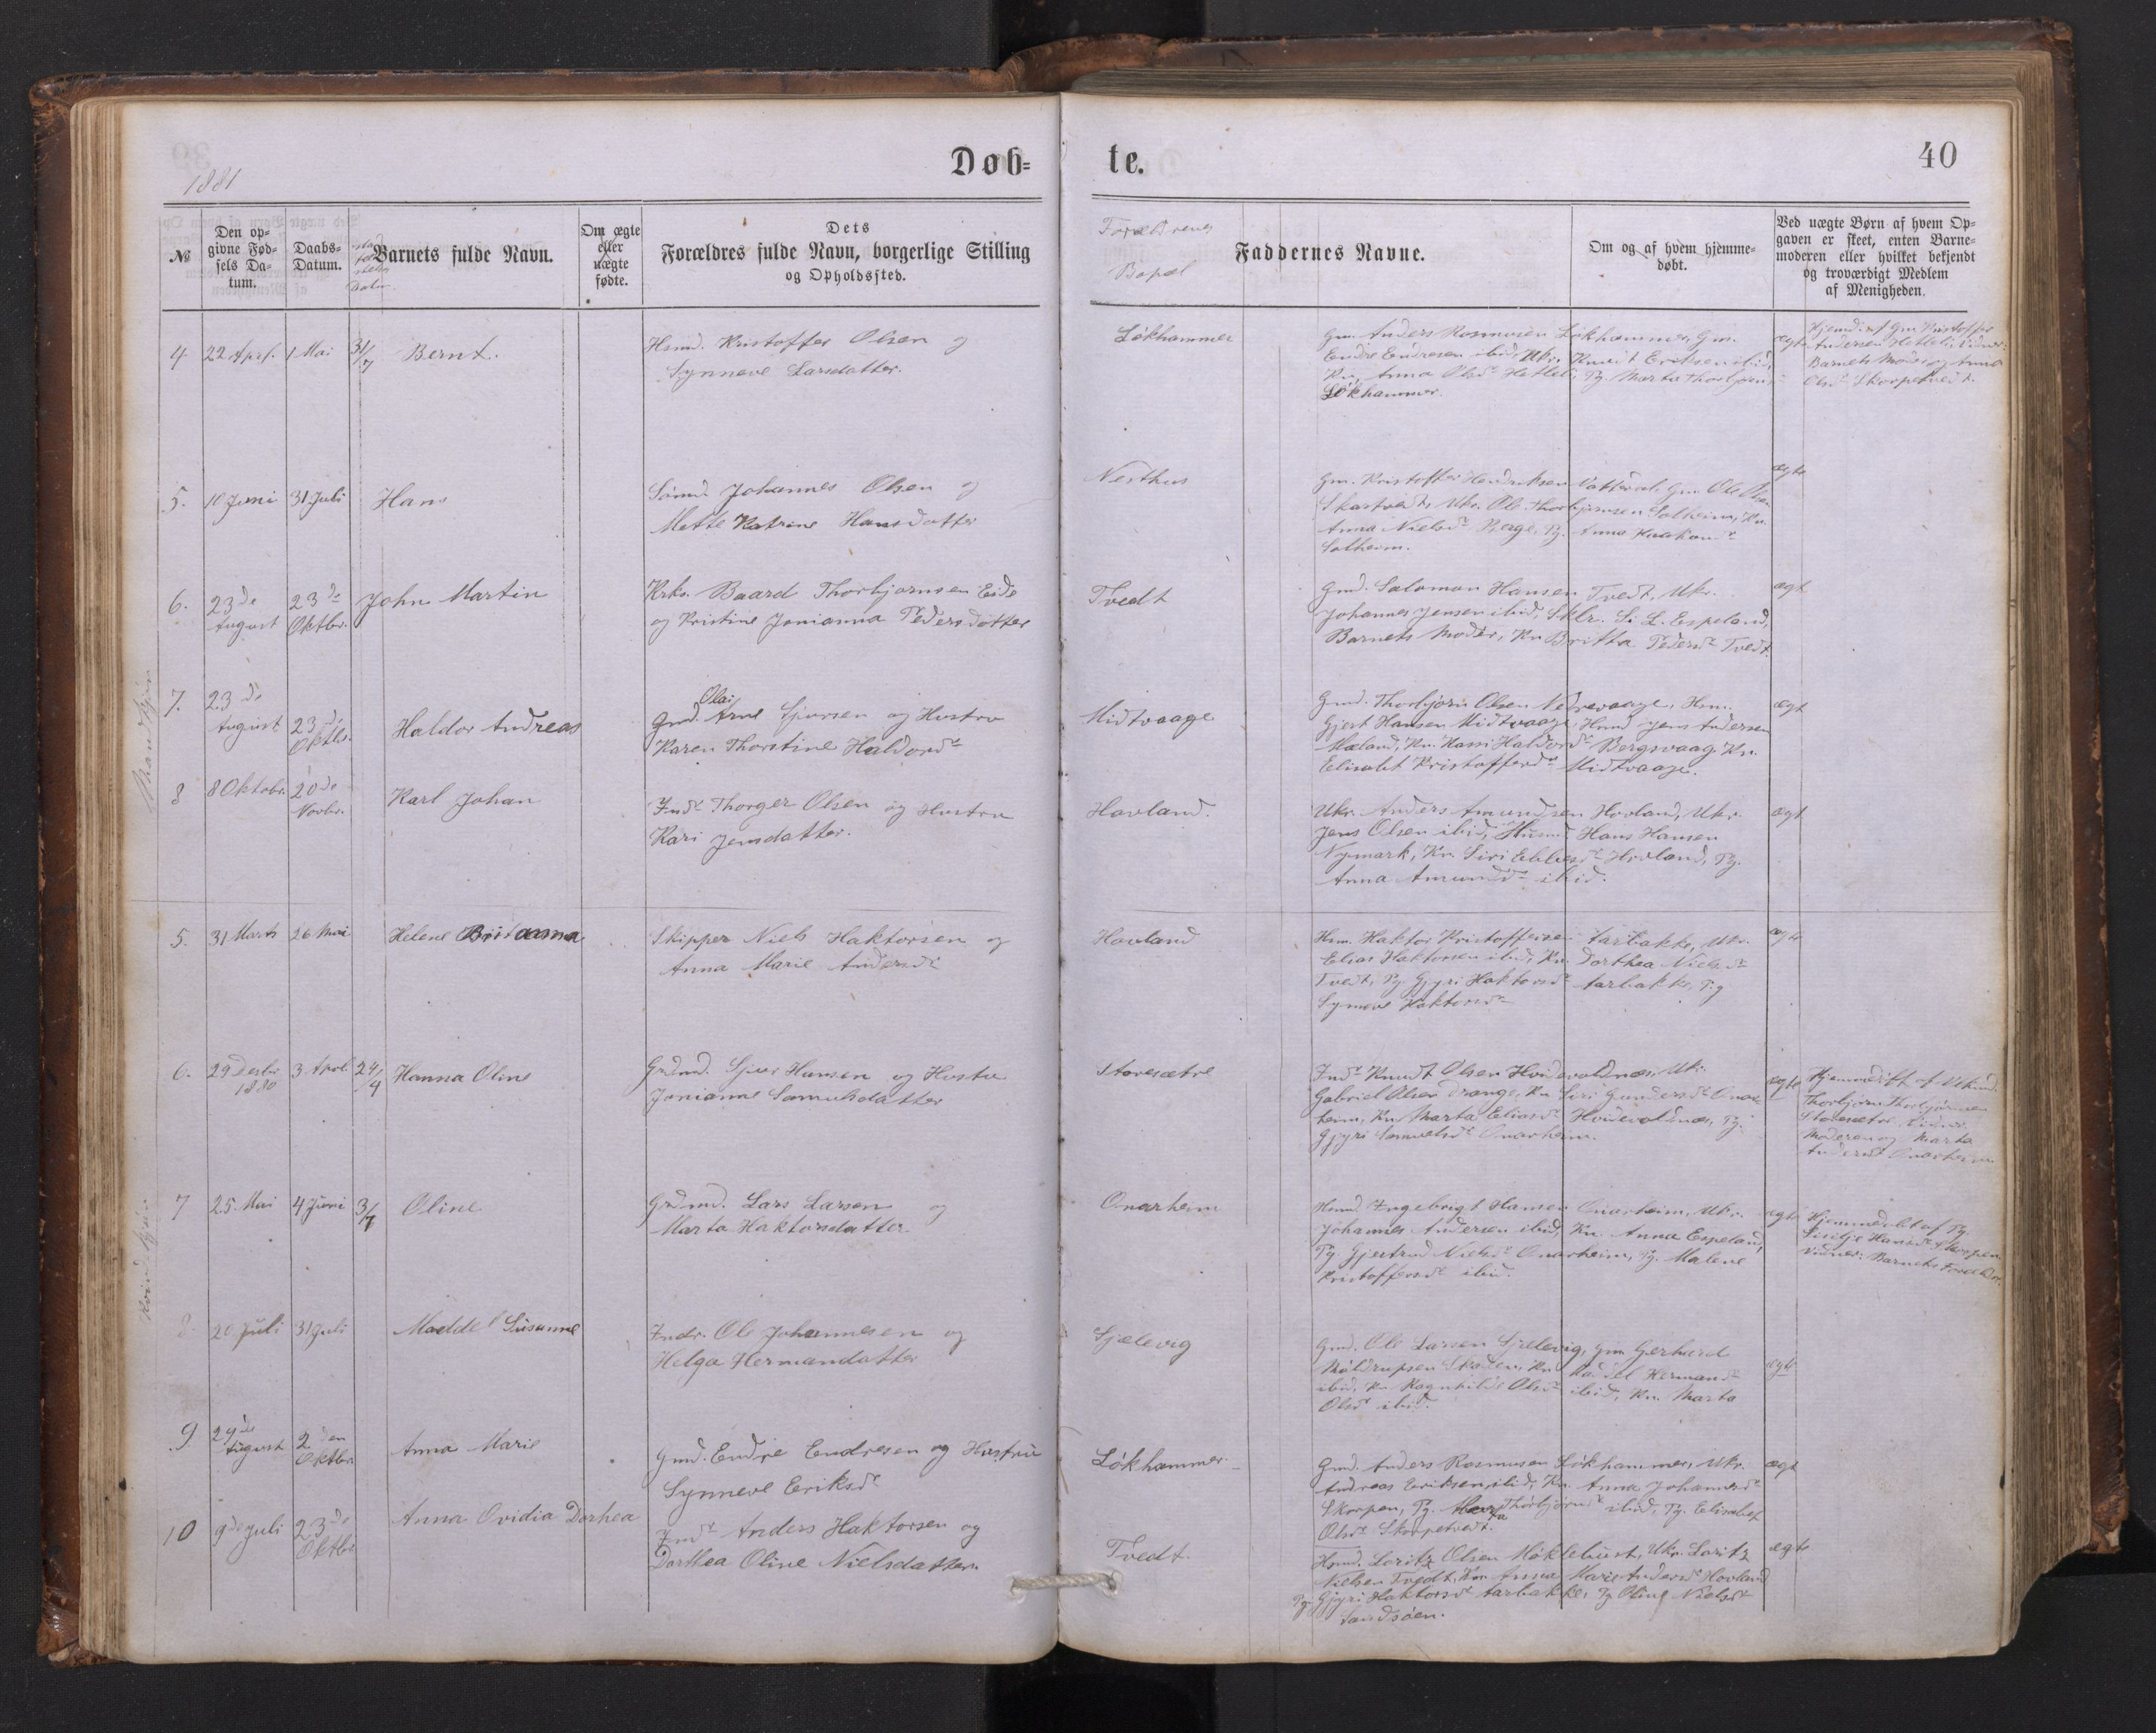 1881
Døb-
te.
40
№
Den op-
givne Fød-
sels Da-
tum.
Daabs-
Datum.
Barnets fulde Navn.
Om ægte
eller
uægte
fødte.
Dets
Forældres fulde Navn, borgerlige Stilling
og Opholdssted.
Forældrenes
Bopæl
Faddernes Navne.
Om og af hvem hjemme-
døbt.
Ved uægte Børn af hvem Op-
gaven er skeet, enten Barne-
moderen eller hvilket bekjendt
og troværdigt Medlem
af Menigheden.
Mandkjøn
4. 22 April. 1 Mai 31/7 Bernt.
Hsmd. Kristoffer Olsen og
Synneve Larsdatter.
Løkhammer
Gm. Anders Rasmusen Løkhammer, Gm.
Endre Endresen ibid, Ukr. Knut Eriksen ibid,
Kn. Anna Olsdr Hetleli, Pg. Marta Thorbjørns
Løkhammer.
ægte
Hjemd. af Gm Kristoffer
Andersen Hetleli, Vidner:
Barnets Moder og Anna
Olsdr Skorpetvedt.
5. 10 Juni 31 Juli Hans
Johannes Olsen og
Mette Katrine Hansdatter
Nesthus
Gm. Kristoffer Hendriksen Gm. Ole Olsen
Ukr. Ole Thorbjørnsen Solheim, Kn.
Anna Nielsdr Berge, Pg. Anna
Solheim.
ægte
6. 23de August 23de Oktbr. John Martin
Krks. Baard Thorbjørnsen Eide
og Kristine Jonianna Pedersdatter
Tvedt
Gmd. Salomon Hansen Tvedt, Ukr.
Johannes Jensen ibid, Sklr. S. L. Espeland,
Barnets Moder, Kn Britta Pedersdr Tvedt.
ægt
7. 23de August 23de Oktbr. Haldor Andreas
Olai
Gmd. Arne Sjursen og Hustru
Karen Thorstine Haldorsdr
Midtvaage
Gmd. Thorbjørn Olsen Nedrevaage, Hsm.
Gjert Hansen Midtvaage, Hsmd Jens Andersen
Mæland, Kn. Kari Haldorsdr Bergsvaag, Kn.
Elisabet Kristoffersdr Midtvaage.
ægt
8 8 Oktobr. 20de Novbr. Karl Johan
Indr Thorger Olsen og Hustru
Kari Jensdatter.
Hovland.
Ukr. Anders Amundsen Hovland, Ukr.
Jens Olsen ibid, Husmd Hans Hansen
Nymark, Kn. Siri Hovland, Pg.
Anna Amundsdr ibid.
ægt
Kvindkjøn
5. 31 Marts 26 Mai Helene Britanna
Skipper Niels Haktorsen og
Anna Marie Andersdr
Hovland
Hsm. Haktor Kristoffersen Aarbakke, Ukr.
Elias Haktorsen ibid, Kn. Dorthea Nielsdr
Tvedt, Pg. Gjyri Haktorsdr Aarbakke, Pg
Synneve Haktorsdr
ægte
6. 29 Decbr 1880 3. April 24/4 Hanna Oline
Grdmd. Sjur Hansen og Hustru
Jonianne Samuelsdatter
Storesætre
Indr Knudt Olsen Hvidevoldnæs, Ukr.
Gabriel Olsen Drange, Kn Siri Gundersdr Onar-
heim, Kn Marta Eliasdr Hvidevoldnæs, Pg.
Gjyri Samuelsdr Onarheim.
ægte
Hjemmedøbt af
Thorbjørn Thorbjørnsen
Storesætre, Vidner:
Moderen og Marta
Andersdr Onarheim.
7 25. Mai 4 Juni 3/7 Oline
Grdmd. Lars Larsen og
Marta Haktorsdatter
Onarheim
Hsmd Ingebrigt Hansen Onarheim, Ukr.
Johannes Andersen ibid, Kn. Anna Espeland,
Pg. Gjertrud Nielsdr Onarheim, Pg. Malene
Kristoffersdr ibid.
ægte
Hjemmedøbt af Pg.
Sissilje Hansdr Skorpen
Vidner: Barnets Forældre.
8. 20 Juli 31 Juli Maddel Susanne
Indr. Ole Johannesen og
Helga Hermandatter
Sjælevig
Gmd. Ole Larsen Sjælevig, Gm Gerhard
Kn Maddel Hermandr
ibid, Kn Ragnhilde Olsdr ibid, Kn. Marta
Olsdr ibid.
ægte
9 29de August 2den Oktbr. Anna Marie
Gmd. Endre Endresen og Hustru
Synneve Eriksdr
Løkhammer
Gmd. Anders Rasmusen Løkhammer, Ukr.
Andreas Eriksen ibid, Kn. Anna Johannesdr
Skorpen, Pg. Thorbjørnsdr ibid, Pg. Elisabet
Olsdr Skorpetvedt.
ægt
10 9de Juli 23de Oktbr. Anna Ovidia Dorhea
Indr Anders Haktorsen og
Dorthea Oline Nielsdatter.
Tvedt.
Hsmd. Loritz Olsen Møklebust, Ukr. Loritz
Nielsen Tvedt, Kn. Anna Marie Andersdr Hovland
Pg. Gjyri Haktorsdr Aarbakke, Pg Oline Nielsdr
Sandsøen.
ægte